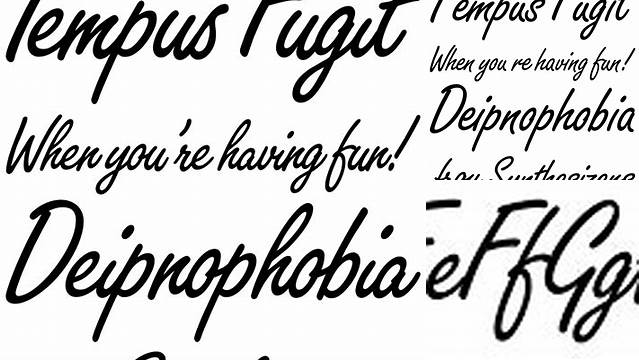 Tempus Fugit
When you're having fun!
Deipnophobia
Tempus Fugit
When you re having fun!
Deipnophobia
eFfGg